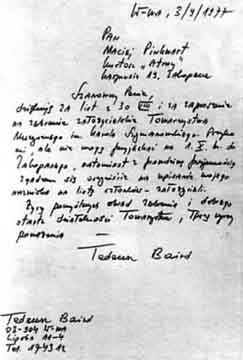 W-wa, 3/9/1977
Pan
Maciej Pinkwart
Kustosz „Atmy”
Kasprusie 19, Zakopane
Szanowny Panie,
dziękuję za list z 30 VIII i za zaproszenie
na zebranie założycielskie Towarzystwa
Muzycznego im. Karola Szymanowskiego. Przykro
mi, ale nie mogę przyjechać na 1. X. b.r. do
Zakopanego, natomiast z prawdziwą przyjemnością
zgadzam się oczywiście na wpisanie mojego
nazwiska na listę członków-założycieli.
Życzę pomyślnych obrad Zebrania i dobrego
startu działalności Towarzystwa, łączę wyrazy
poważania –
Tadeusz Baird
Tadeusz Baird
Lipska 11-4
Tel. 174312